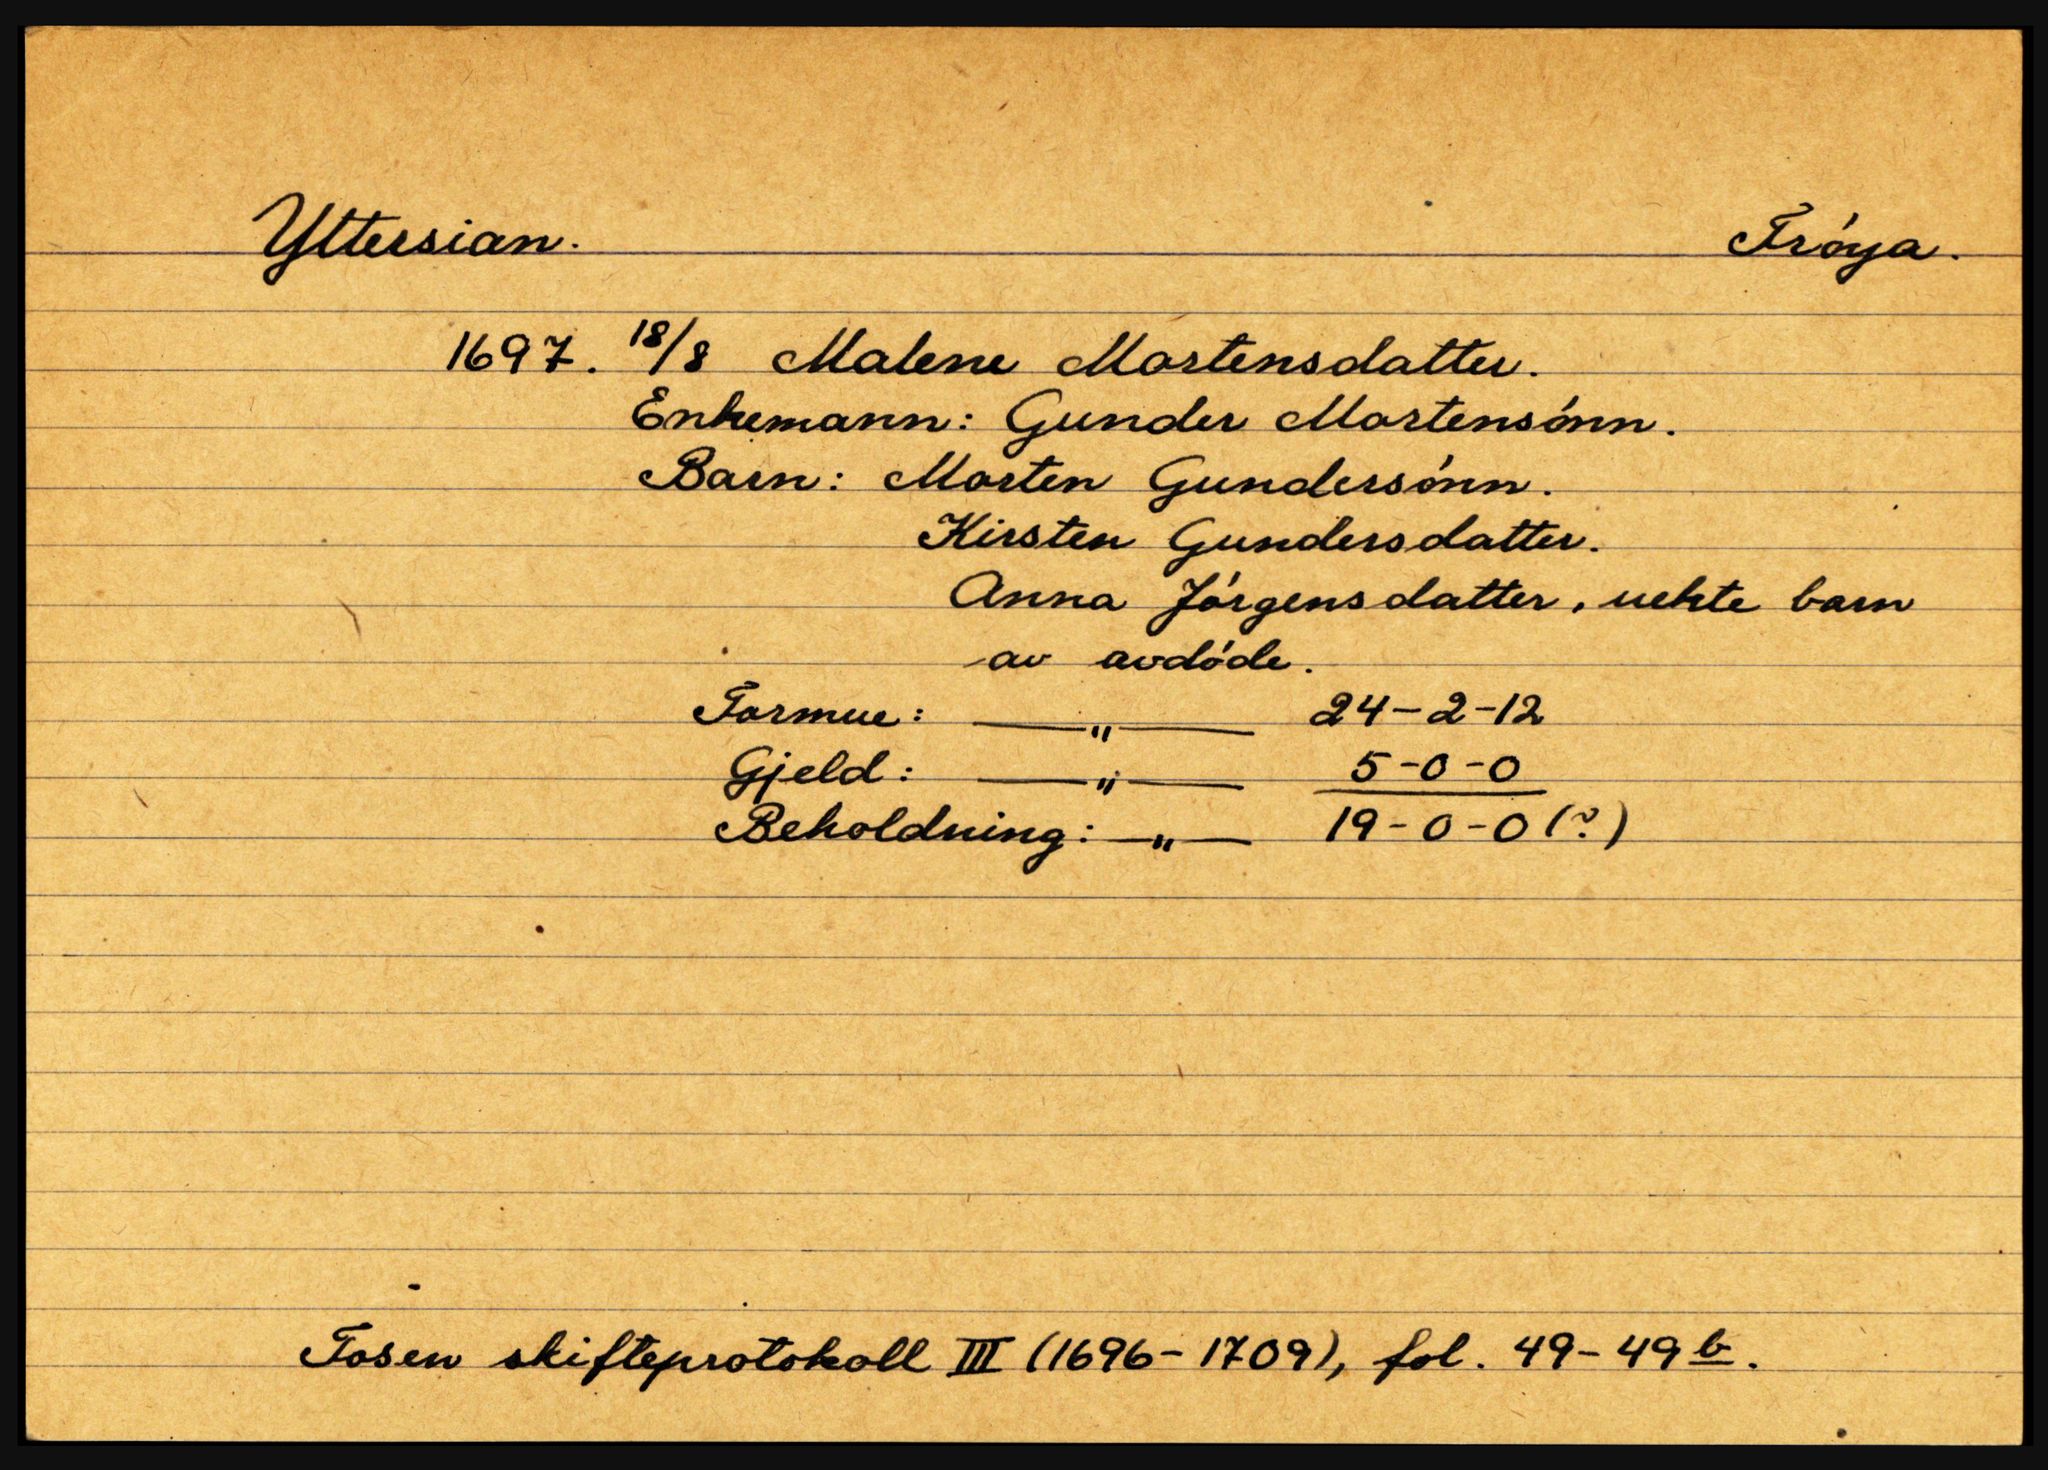 Yttersian. Frøya.
1697. 18/8 Malene Mortensdatter.
Enkemann: Gunder Mortensønn.
Barn: Morten Gundersønn.
Kirsten Gundersdatter.
Anna Jørgensdatter, uekte barn
av avdøde.
Formue: —„— 24-2-12
Gjeld: —„— 5-0-0
Beholdning: —„— 19-0-0 (?)
Fosen skifteprotokoll III (1696-1709), fol. 49-49 b.